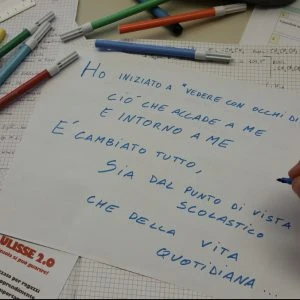 HO INIZIATO A "VEDERE CON OCCHI DI
CIÒ CHE ACCADE A ME
E INTORNO A ME
E' CAMBIATO TUTTO,
SIA DAL PUNTO DI VISTA
SCOLASTICO
CHE DELLA VITA
QUOTIDIANA...
ULISSE 2.0